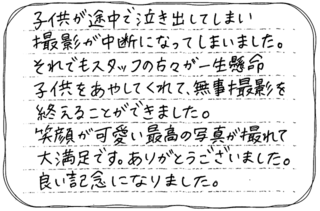 子供が途中で泣き出してしまい
撮影が中断になってしまいました。
それでもスタッフの方々が一生懸命
子供をあやしてくれて、無事撮影を
終えることができました。
笑顔が可愛い最高の写真が撮れて
大満足です。ありがとうございました。
良い記念になりました。